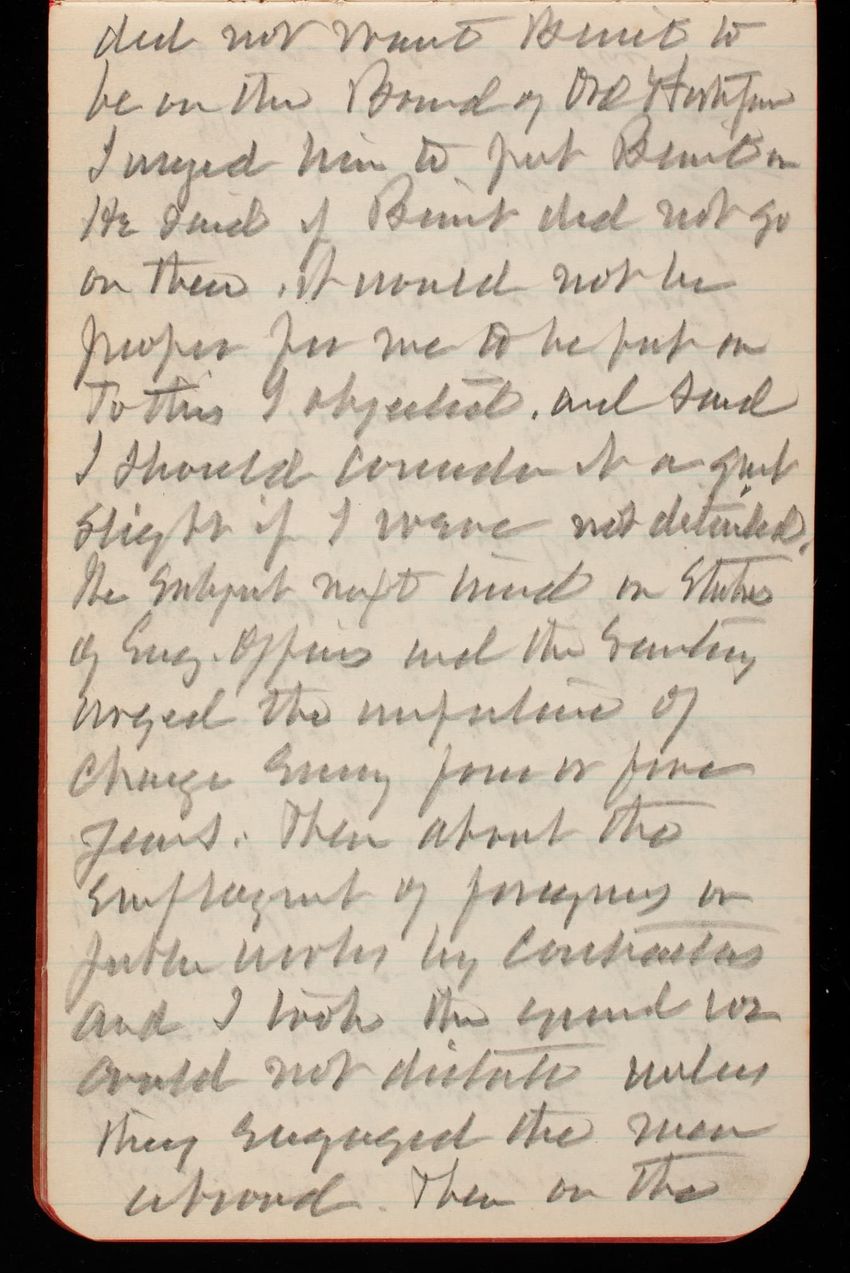 did not want Benit to
be on the Board of Ord & Fortifn
I urged him to put Benit on
He said if Benit did not go
on then, it would not be
proper for me to be put on
To this I objected, and said
I should consider it a great
slight if I were not detailed.
The subject next turned on Status
of Eng. Officers and the Secretary
urged the importance of
change every four or five
years. Then about the
employment of foreigners on
public works by contractors
and I took the ground we
could not dictate unless
they engaged the man
abroad. Then on the